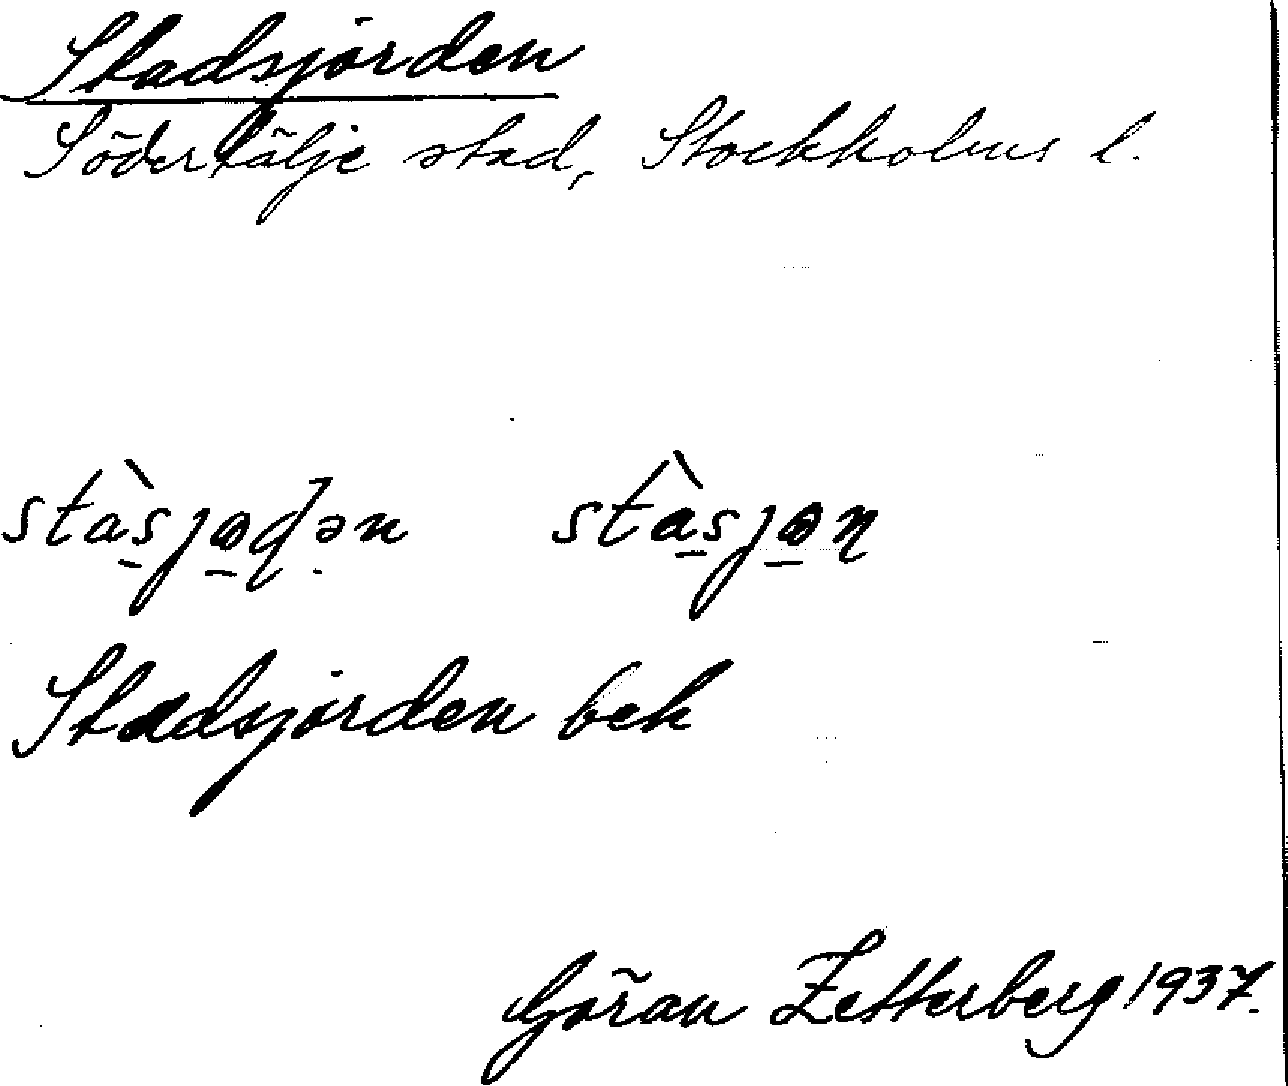 Stadsjorden
Södertälje stad, Stockholms l.
Stadsjorden bek
Göran Zetterberg 1937.